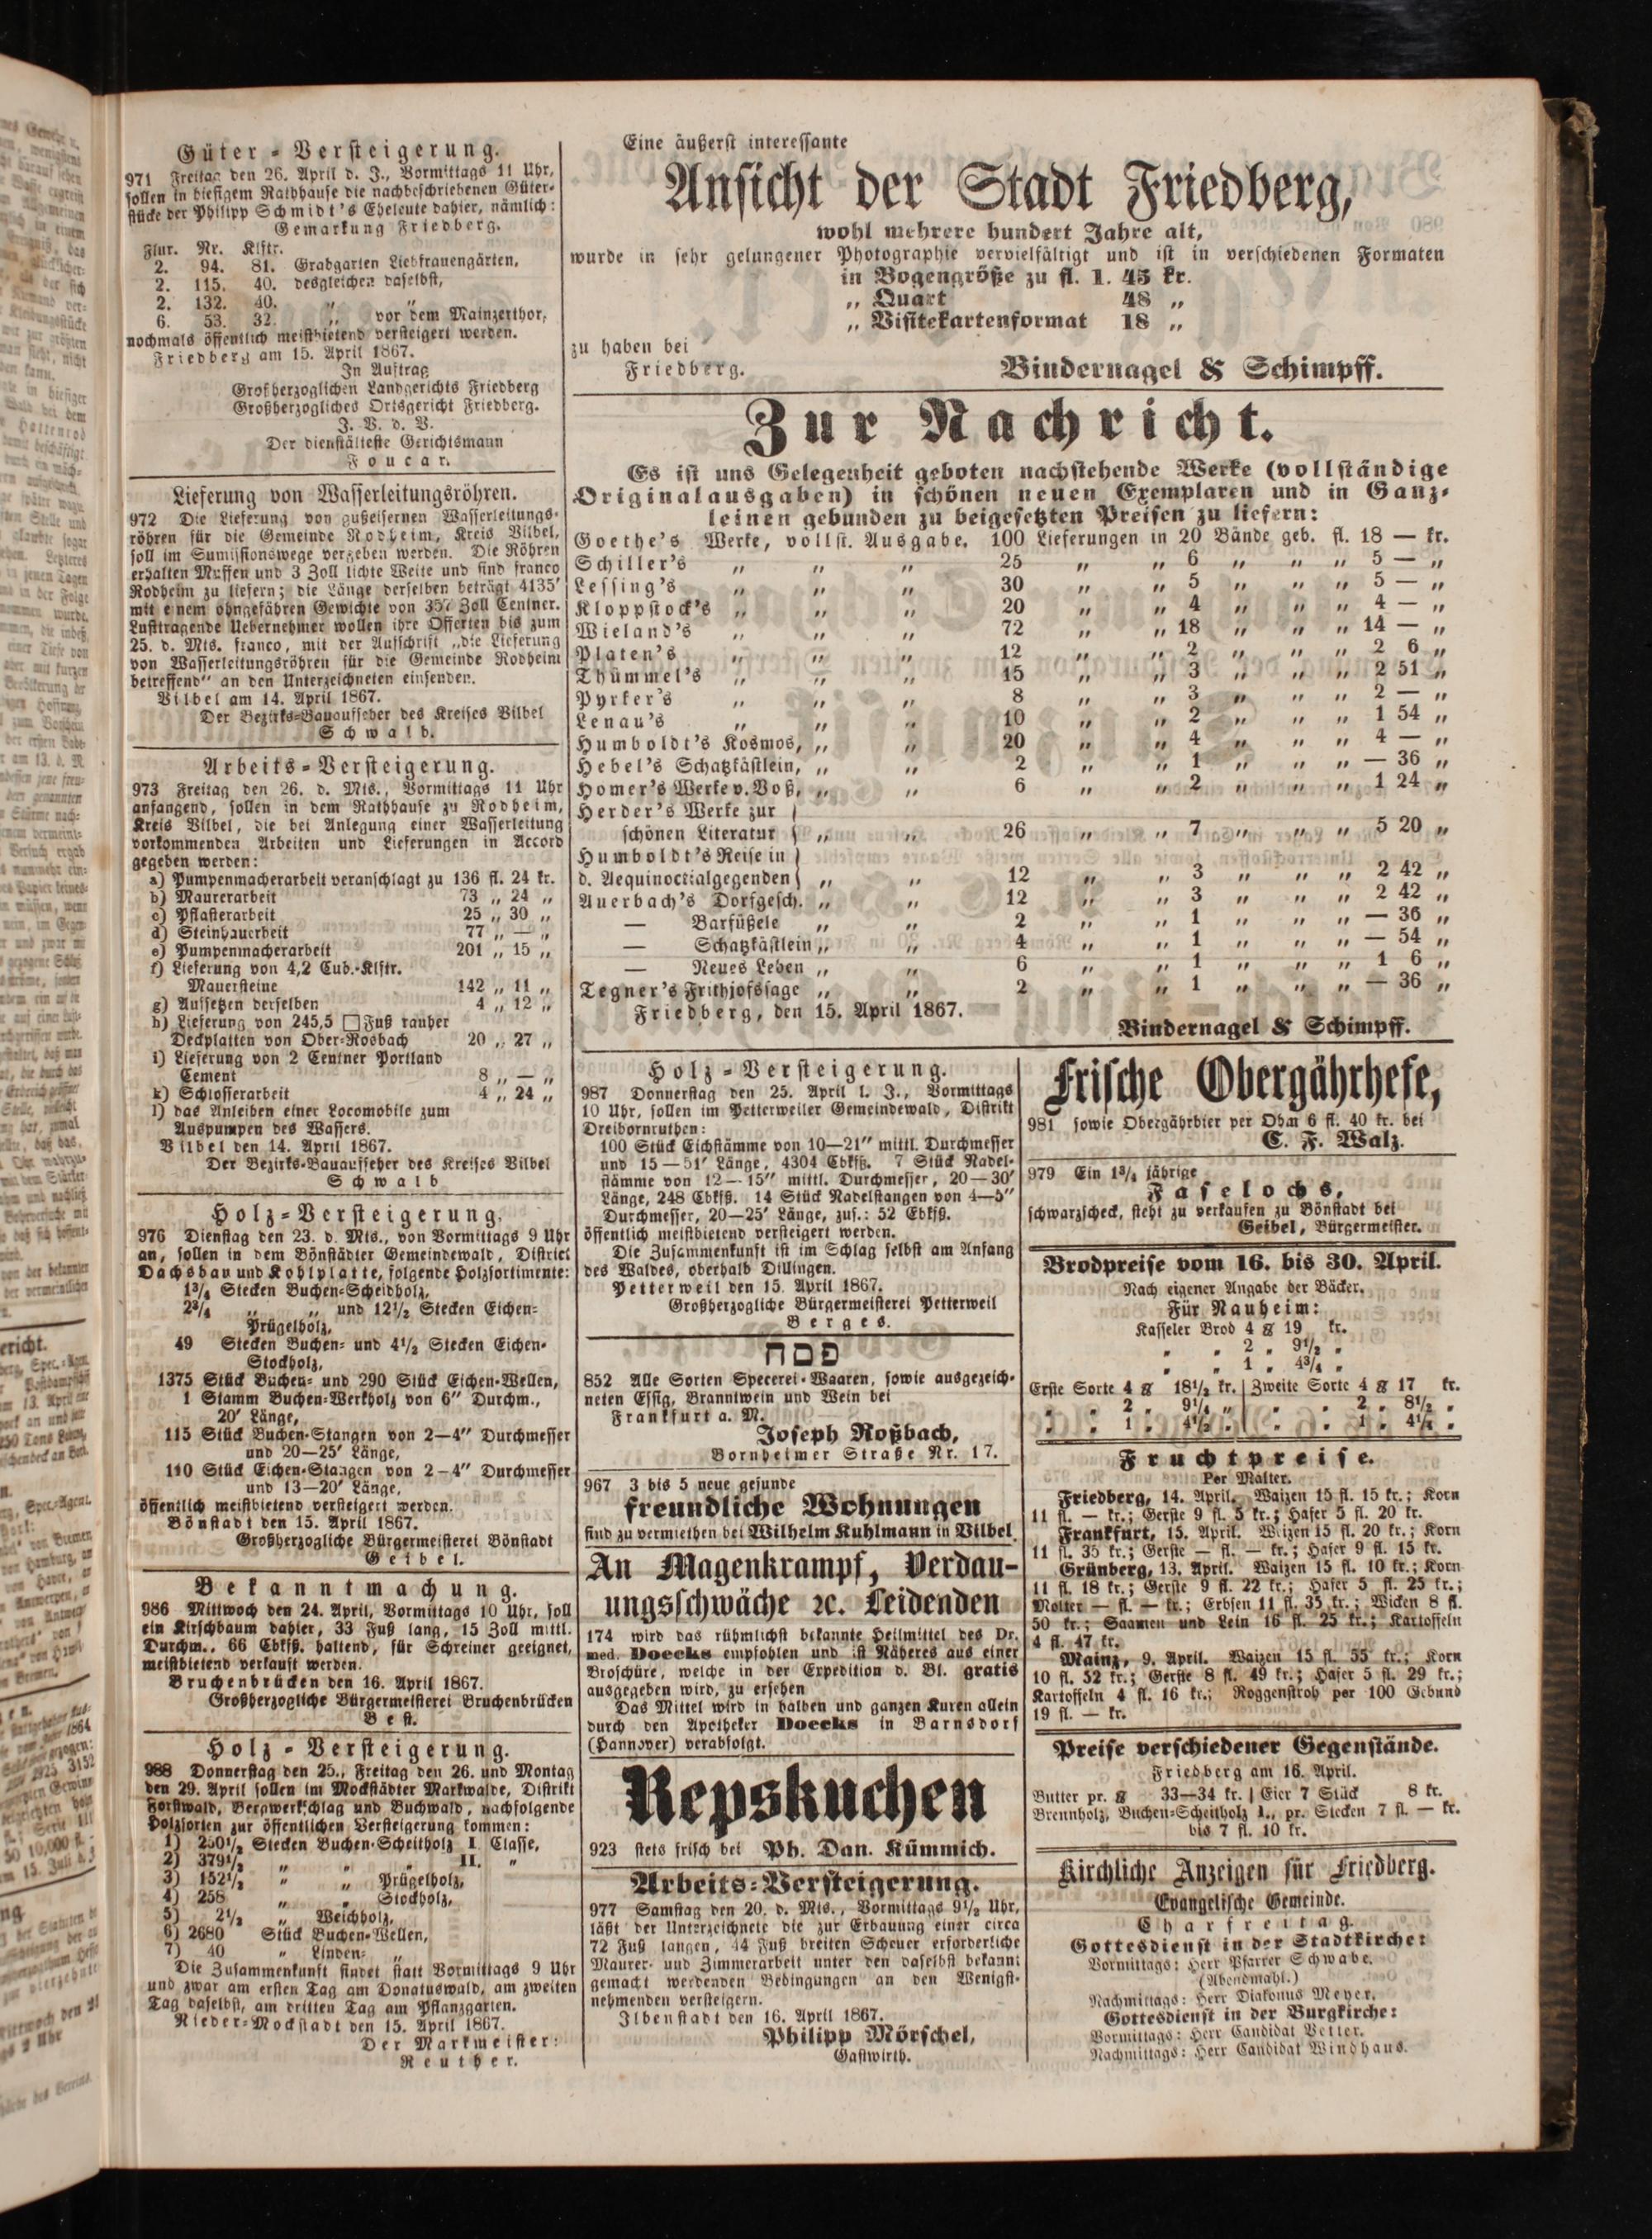 Güter-Versteigerung.
971 Freitag den 26. April d. J., Vormittags 11 Uhr,
sollen in hiesigem Rathhause die nachbeschriebenen Güter-
stücke der Philipp Schmidt's Eheleute dahier, nämlich:
Gemarkung Friedberg.
Flur. Nr. Klftr.
2. 94. 81. Grabgarten Liebfrauengärten,
2. 115. 40. desgleichen daselbst,
2. 132. 40. „ „
6. 53. 32. „ vor dem Mainzerthor,
nochmals öffentlich meistbietend versteigert werden.
Friedberg am 15. April 1867.
In Auftrag
Großherzoglichen Landgerichts Friedberg
Großherzogliches Ortsgericht Friedberg.
J. V. d. V.
Der dienstälteste Gerichtsmann
Foucar.
Lieferung von Wasserleitungsröhren.
972 Die Lieferung von gußeisernen Wasserleitungs-
röhren für die Gemeinde Rodheim, Kreis Vilbel,
soll im Sumissionswege vergeben werden. Die Röhren
erhalten Muffen und 3 Zoll lichte Weite und sind franco
Rodheim zu liefern; die Länge derselben beträgt 4135'
mit einem ohngefähren Gewichte von 357 Zoll Centner.
Lusttragende Uebernehmer wollen ihre Offerten bis zum
25. d. Mts. franco, mit der Aufschrift „die Lieferung
von Wasserleitungsröhren für die Gemeinde Rodheim
betreffend“ an den Unterzeichneten einsenden.
Vilbel am 14. April 1867.
Der Bezirks-Bauaufseher des Kreises Vilbel
Schwalb.
Arbeits-Versteigerung.
973 Freitag den 26. d. Mts., Vormittags 11 Uhr
anfangend, sollen in dem Rathhause zu Rodheim,
Kreis Vilbel, die bei Anlegung einer Wasserleitung
vorkommenden Arbeiten und Lieferungen in Accord
gegeben werden:
a) Pumpenmacherarbeit veranschlagt zu 136 fl. 24 kr.
b) Maurerarbeit 73 „ 24 „
c) Pflasterarbeit 25 „ 30 „
d) Steinhauerbeit 77 „ — „
e) Pumpenmacherarbeit 201 „ 15 „
f) Lieferung von 4,2 Cub.-Klftr.
Mauersteine 142 „ 11 „
g) Aufsetzen derselben 4 „ 12 „
h) Lieferung von 245,5 □Fuß rauher
Deckplatten von Ober-Rosbach 20 „ 27 „
i) Lieferung von 2 Centner Portland
Cement 8 „ — „
k) Schlosserarbeit 4 „ 24 „
l) das Anleihen einer Locomobile zum
Auspumpen des Wassers.
Vilbel den 14. April 1867.
Der Bezirks-Bauaufseher des Kreises Vilbel
Schwalb
Holz-Versteigerung.
976 Dienstag den 23. d. Mts., von Vormittags 9 Uhr
an, sollen in dem Bönstädter Gemeindewald, District
Dachsbau und Kohlplatte, folgende Holzsortimente:
1¾ Stecken Buchen-Scheidholz,
2¾ „ „ und 12½ Stecken Eichen-
Prügelholz,
49 Stecken Buchen- und 4½ Stecken Eichen-
Stockholz,
1375 Stück Buchen- und 290 Stück Eichen-Wellen,
1 Stamm Buchen-Werkholz von 6" Durchm.,
20' Länge,
115 Stück Buchen-Stangen von 2—4" Durchmesser
und 20—25' Länge,
110 Stück Eichen-Stangen von 2—4" Durchmesser
und 13—20' Länge,
öffentlich meistbietend versteigert werden.
Bönstadt den 15. April 1867.
Großherzogliche Bürgermeisterei Bönstadt
Geibel.
Bekanntmachung.
986 Mittwoch den 24. April, Vormittags 10 Uhr, soll
ein Kirschbaum dahier, 33 Fuß lang, 15 Zoll mittl.
Durchm., 66 Cbkfß. haltend, für Schreiner geeignet,
meistbietend verkauft werden.
Bruchenbrücken den 16. April 1867.
Großherzogliche Bürgermeisterei Bruchenbrücken
Best.
Holz-Versteigerung.
988 Donnerstag den 25., Freitag den 26. und Montag
den 29. April sollen im Mockstädter Markwalde, Distrikt
Forstwald, Bergwerkschlag und Buchwald, nachfolgende
Holzsorten zur öffentlichen Versteigerung kommen:
1) 250½ Stecken Buchen-Scheitholz I. Classe,
2) 379½ „ „ „ II. „
3) 152½ „ „ Prügelholz,
4) 258 „ „ Stockholz,
5) 2½ „ Weichholz,
6) 2680 Stück Buchen-Wellen,
7) 40 „ Linden- „
Die Zusammenkunft findet statt Vormittags 9 Uhr
und zwar am ersten Tag am Donatuswald, am zweiten
Tag daselbst, am dritten Tag am Pflanzgarten.
Nieder-Mockstadt den 15. April 1867.
Der Markmeister:
Reuther.
Eine äußerst interessante
Ansicht der Stadt Friedberg,
wohl mehrere hundert Jahre alt,
wurde in sehr gelungener Photographie vervielfältigt und ist in verschiedenen Formaten
in Bogengröße zu fl. 1. 45 kr.
„ Quart 48 „
„ Visitekartenformat 18 „
zu haben bei
Friedberg. Bindernagel & Schimpff.
Zur Nachricht.
Es ist uns Gelegenheit geboten nachstehende Werke (vollständige
Originalausgaben) in schönen neuen Exemplaren und in Ganz-
leinen gebunden zu beigesetzten Preisen zu liefern:
Goethe's Werke, vollst. Ausgabe, 100 Lieferungen in 20 Bände geb. fl. 18 — kr.
Schiller's „ „ „ 25 „ „ 6 „ „ „ 5 — „
Lessing's „ „ „ 30 „ „ 5 „ „ „ 5 — „
Kloppstock's „ „ „ 20 „ „ 4 „ „ „ 4 — „
Wieland's „ „ „ 72 „ „ 18 „ „ „ 14 — „
Platen's „ „ „ 12 „ „ 2 „ „ „ 2 6 „
Thümmel's „ „ „ 15 „ „ 3 „ „ „ 2 51 „
Pyrker's „ „ „ 8 „ „ 3 „ „ „ 2 — „
Lenau's „ „ „ 10 „ „ 2 „ „ „ 1 54 „
Humboldt's Kosmos, „ „ 20 „ „ 4 „ „ „ 4 — „
Hebel's Schatzkästlein, „ „ 2 „ „ 1 „ „ „ — 36 „
Homer's Werke v. Voß, „ „ 6 „ „ 2 „ „ „ 1 24 „
Herder's Werke zur
schönen Literatur „ „ 26 „ „ 7 „ „ „ 5 20 „
Humboldt's Reise in
d. Aequinoctialgegenden „ „ 12 „ „ 3 „ „ „ 2 42 „
Auerbach's Dorfgesch. „ „ 12 „ „ 3 „ „ „ 2 42 „
— Barfüßele „ „ 2 „ „ 1 „ „ „ — 36 „
— Schatzkästlein „ „ 4 „ „ 1 „ „ „ — 54 „
— Neues Leben „ „ 6 „ „ 1 „ „ „ 1 6 „
Tegner's Frithjofssage „ „ 2 „ „ 1 „ „ „ — 36 „
Friedberg, den 15. April 1867.
Bindernagel & Schimpff.
Holz-Versteigerung.
987 Donnerstag den 25. April l. J., Vormittags
10 Uhr, sollen im Petterweiler Gemeindewald, Distrikt
Dreibornruthen:
100 Stück Eichstämme von 10—21" mittl. Durchmesser
und 15—51' Länge, 4304 Cbkfß. 7 Stück Nadel-
stämme von 12—15" mittl. Durchmesser, 20—30'
Länge, 248 Cbkfß. 14 Stück Nadelstangen von 4—5"
Durchmesser, 20—25' Länge, zus.: 52 Cbkfß.
öffentlich meistbietend versteigert werden.
Die Zusammenkunft ist im Schlag selbst am Anfang
des Waldes, oberhalb Dillingen.
Petterweil den 15. April 1867.
Großherzogliche Bürgermeisterei Petterweil
Berges.
פסח
852 Alle Sorten Specerei-Waaren, sowie ausgezeich-
neten Essig, Branntwein und Wein bei
Frankfurt a. M.
Joseph Roßbach,
Bornheimer Straße Nr. 17.
967 3 bis 5 neue gesunde
freundliche Wohnungen
sind zu vermiethen bei Wilhelm Kuhlmann in Vilbel.
An Magenkrampf, Verdau-
ungsschwäche ꝛc. Leidenden
174 wird das rühmlichst bekannte Heilmittel des Dr.
med. Doecks empfohlen und ist Näheres aus einer
Broschüre, welche in der Expedition d. Bl. gratis
ausgegeben wird, zu ersehen
Das Mittel wird in halben und ganzen Kuren allein
durch den Apotheker Doecks in Barnsdorf
(Hannover) verabfolgt.
Repskuchen
923 stets frisch bei Ph. Dan. Kümmich.
Arbeits-Versteigerung.
977 Samstag den 20. d. Mts., Vormittags 9½ Uhr,
läßt der Unterzeichnete die zur Erbauung einer circa
72 Fuß langen, 44 Fuß breiten Scheuer erforderliche
Maurer- und Zimmerarbeit unter den daselbst bekannt
gemacht werdenden Bedingungen an den Wenigst-
nehmenden versteigern.
Ilbenstadt den 16. April 1867.
Philipp Mörschel,
Gastwirth.
Frische Obergährhefe,
981 sowie Obergährbier per Ohm 6 fl. 40 kr. bei
C. F. Walz.
979 Ein 1¾ jährige
Faselochs,
schwarzscheck, steht zu verkaufen zu Bönstadt bei
Geibel, Bürgermeister.
Brodpreise vom 16. bis 30. April.
Nach eigener Angabe der Bäcker.
Für Nauheim:
Kasseler Brod 4 ℔ 19 kr.
„ „ 2 „ 9½ „
„ „ 1 „ 4¾ „
Erste Sorte 4 ℔ 18½ kr. | Zweite Sorte 4 ℔ 17 kr.
„ „ 2 „ 9¼ „ | „ „ 2 „ 8½ „
„ „ 1 „ 4½ „ | „ „ 1 „ 4¼ „
Fruchtpreise.
Per Malter.
Friedberg, 14. April. Waizen 15 fl. 15 kr.; Korn
11 fl. — kr.; Gerste 9 fl. 5 kr.; Hafer 5 fl. 20 kr.
Frankfurt, 15. April. Waizen 15 fl. 20 kr.; Korn
11 fl. 35 kr.; Gerste — fl. — kr.; Hafer 9 fl. 15 kr.
Grünberg, 13. April. Waizen 15 fl. 10 kr.; Korn
11 fl. 18 kr.; Gerste 9 fl. 22 kr.; Hafer 5 fl. 25 kr.;
Molter — fl. — kr.; Erbsen 11 fl. 35 kr.; Wicken 8 fl.
50 kr.; Saamen und Lein 16 fl. 25 kr.; Kartoffeln
4 fl. 47 kr.
Mainz, 9. April. Waizen 15 fl. 55 kr.; Korn
10 fl. 52 kr.; Gerste 8 fl. 49 kr.; Hafer 5 fl. 29 kr.;
Kartoffeln 4 fl. 16 kr.; Roggenstroh per 100 Gebund
19 fl. — kr.
Preise verschiedener Gegenstände.
Friedberg am 16. April.
Butter pr. ℔ 33—34 kr. | Eier 7 Stück 8 kr.
Brennholz, Buchen-Scheitholz I., pr. Stecken 7 fl. — kr.
bis 7 fl. 10 kr.
Kirchliche Anzeigen für Friedberg.
Evangelische Gemeinde.
Charfreitag.
Gottesdienst in der Stadtkirche:
Vormittags: Herr Pfarrer Schwabe.
(Abendmahl.)
Nachmittags: Herr Diakonus Meyer.
Gottesdienst in der Burgkirche:
Vormittags: Herr Candidat Vetter.
Nachmittags: Herr Candidat Windhaus.